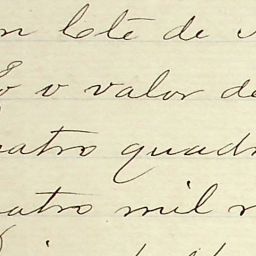 n lote de
o valor de
uatro quadr
uatro mil r